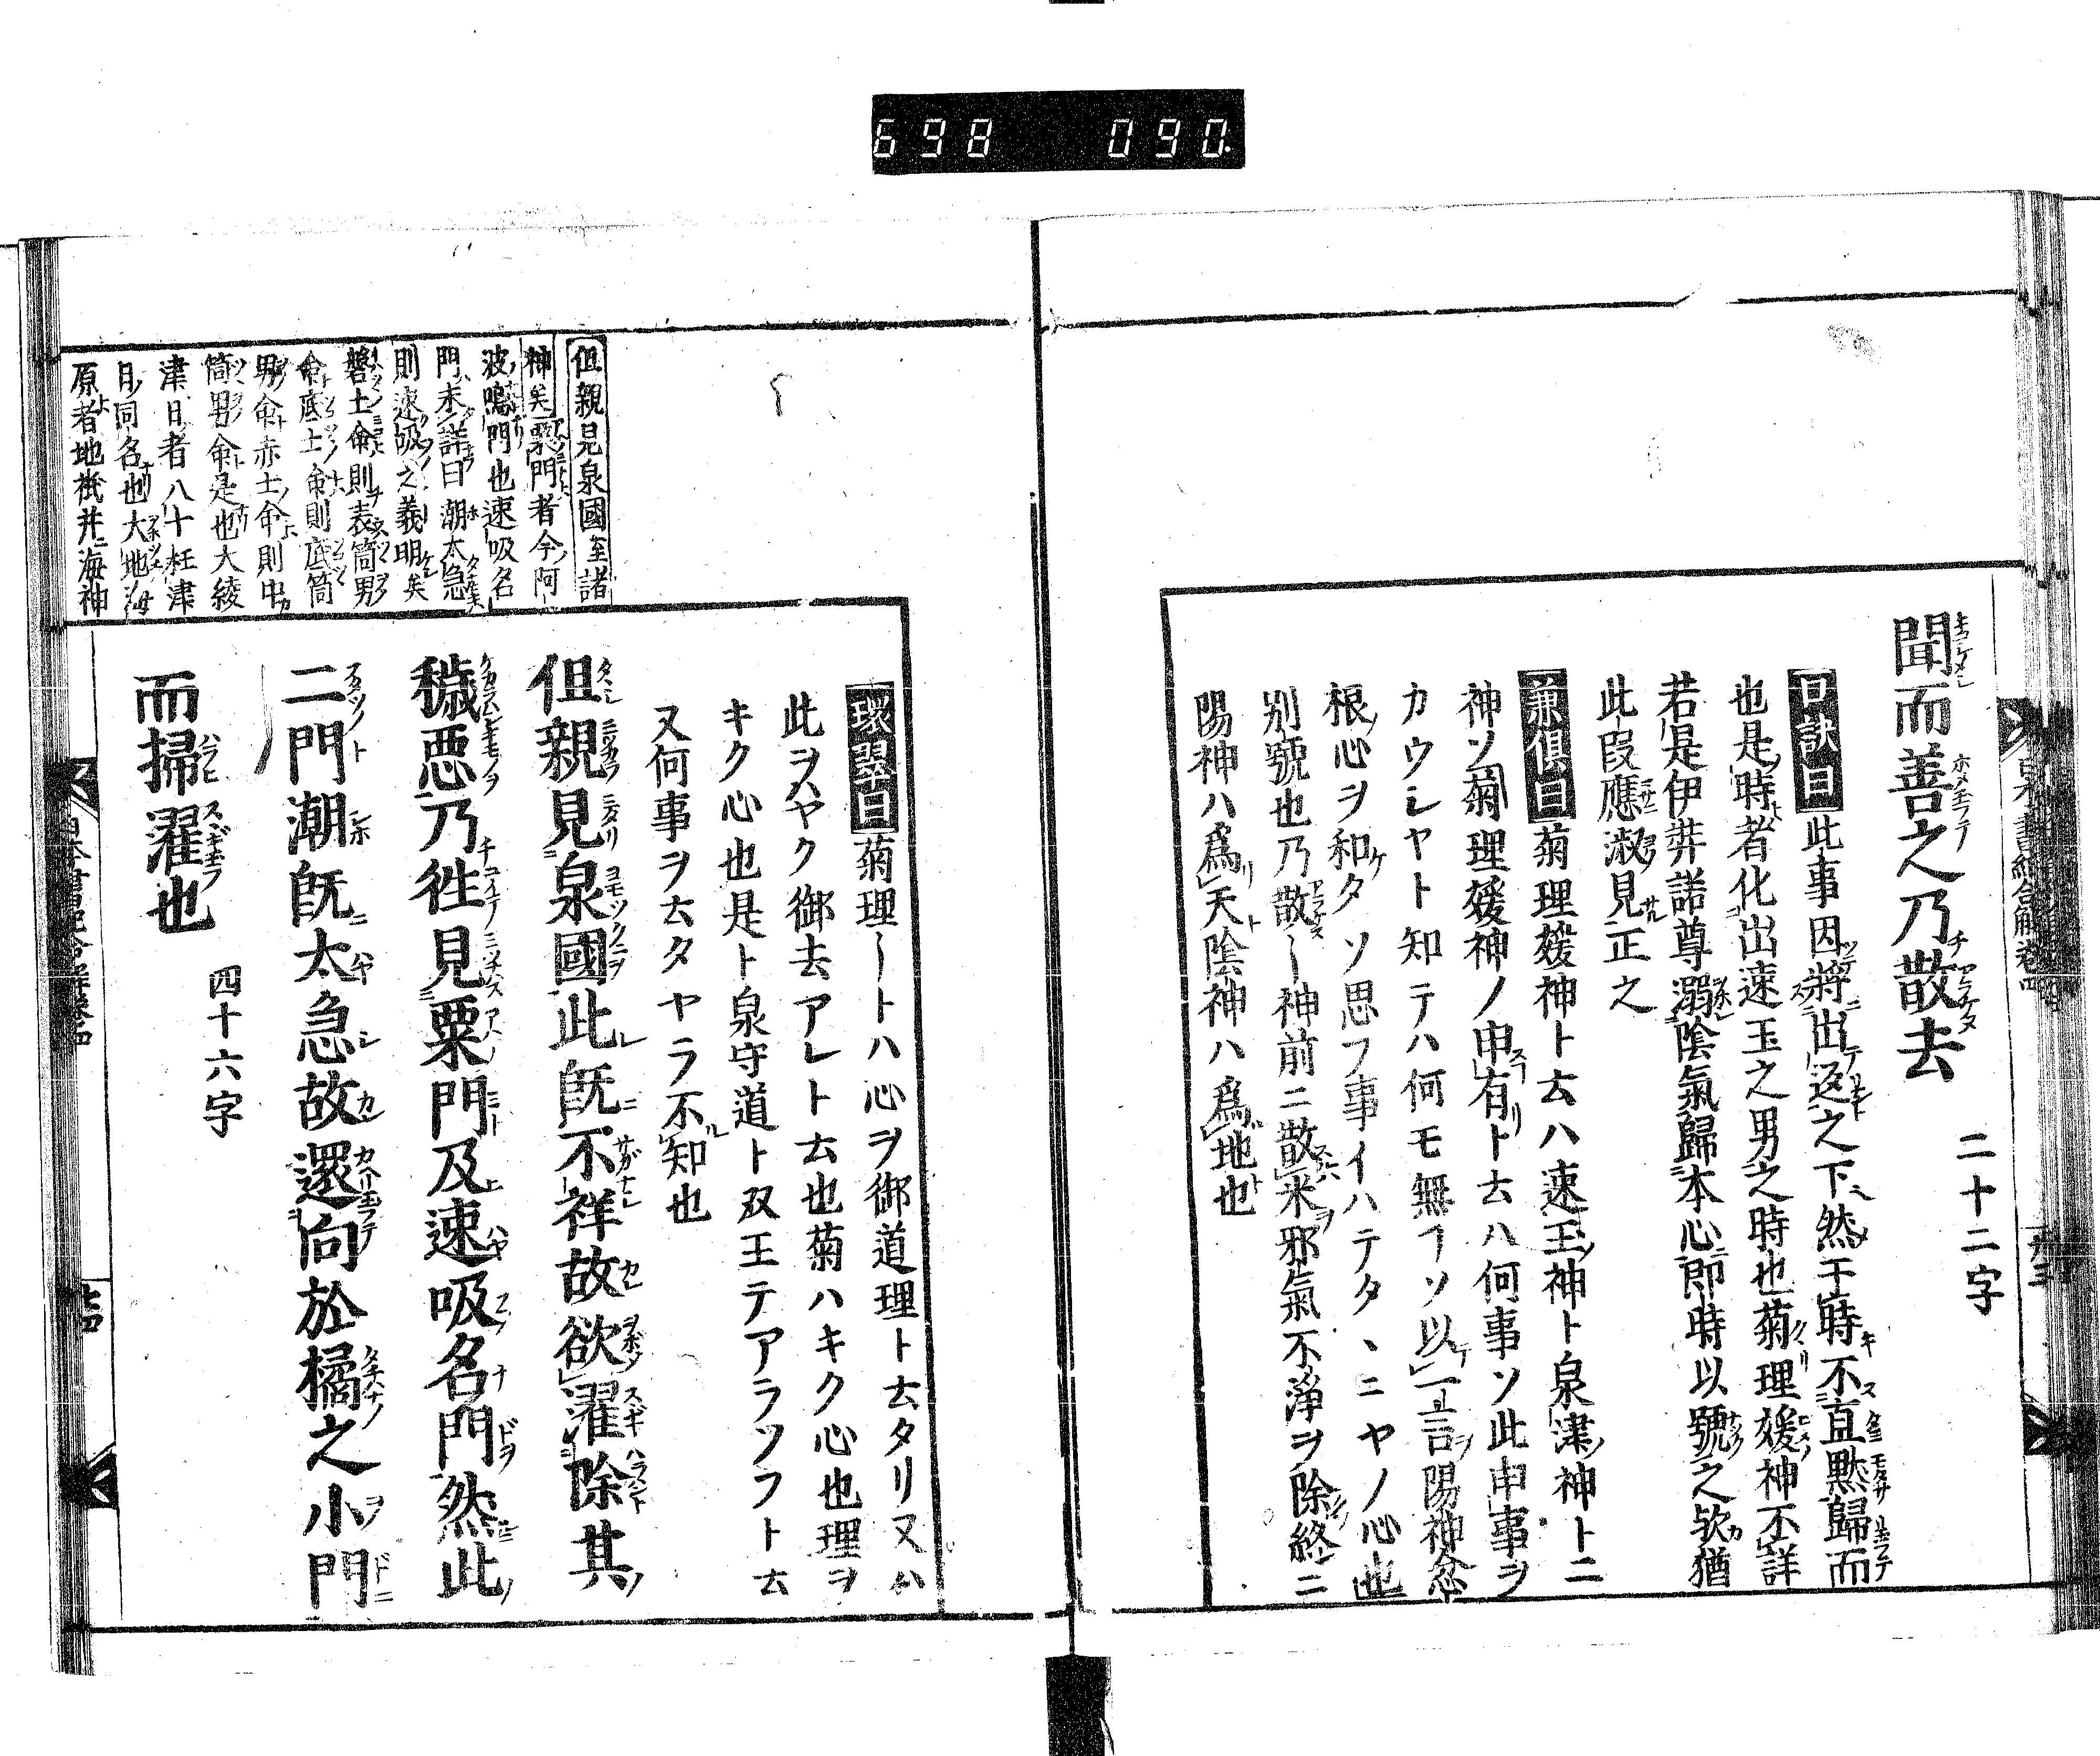 698 090
聞而善之乃散去
二十二字
口訣曰此事因將出返之下然于時不直黙歸而
也是時者化出速玉之男之時也菊理媛神不詳
若是伊弉諾尊溺陰氣歸本心即時以號之欤猶
此段應淑見正之
兼倶曰菊理媛神ト云ハ速玉神ト泉津神ト二
神ソ菊理媛神ノ申有ト云ハ何事ソ此申事ヲ
カウシヤト知テハ何モ無フソ以一言陽神忿
根心ヲ和タソ思フ事イハテタヽニヤノ心也
別號也乃散〡神前ニ散米邪氣不淨ヲ除終ニ
陽神ハ爲天陰神ハ爲地也
環翠曰菊理〡トハ心ヲ御道理ト云タリ又ハ
此ヲハヤク御去アレト云也菊ハキク心也理ヲ
キク心也是ト泉守道ト双王テアラソフト云
又何事ヲ云タヤラ不知也
但親見泉國此既不祥故欲濯除其
穢惡乃徃見粟門及速吸名門然此
二門潮既太急故還向於橘之小門
而掃濯也
四十六字
但親見泉國至諸
神矣粟門者今阿
波鳴門也速吸名
門未詳曰潮太急
則速吸之義明矣
磐土命則表筒男
命底土命則底筒
男命赤土命則中
筒男命是也大綾
津日者八十枉津
日同名也大地海
原者地祇并海神
日本書紀合解卷四